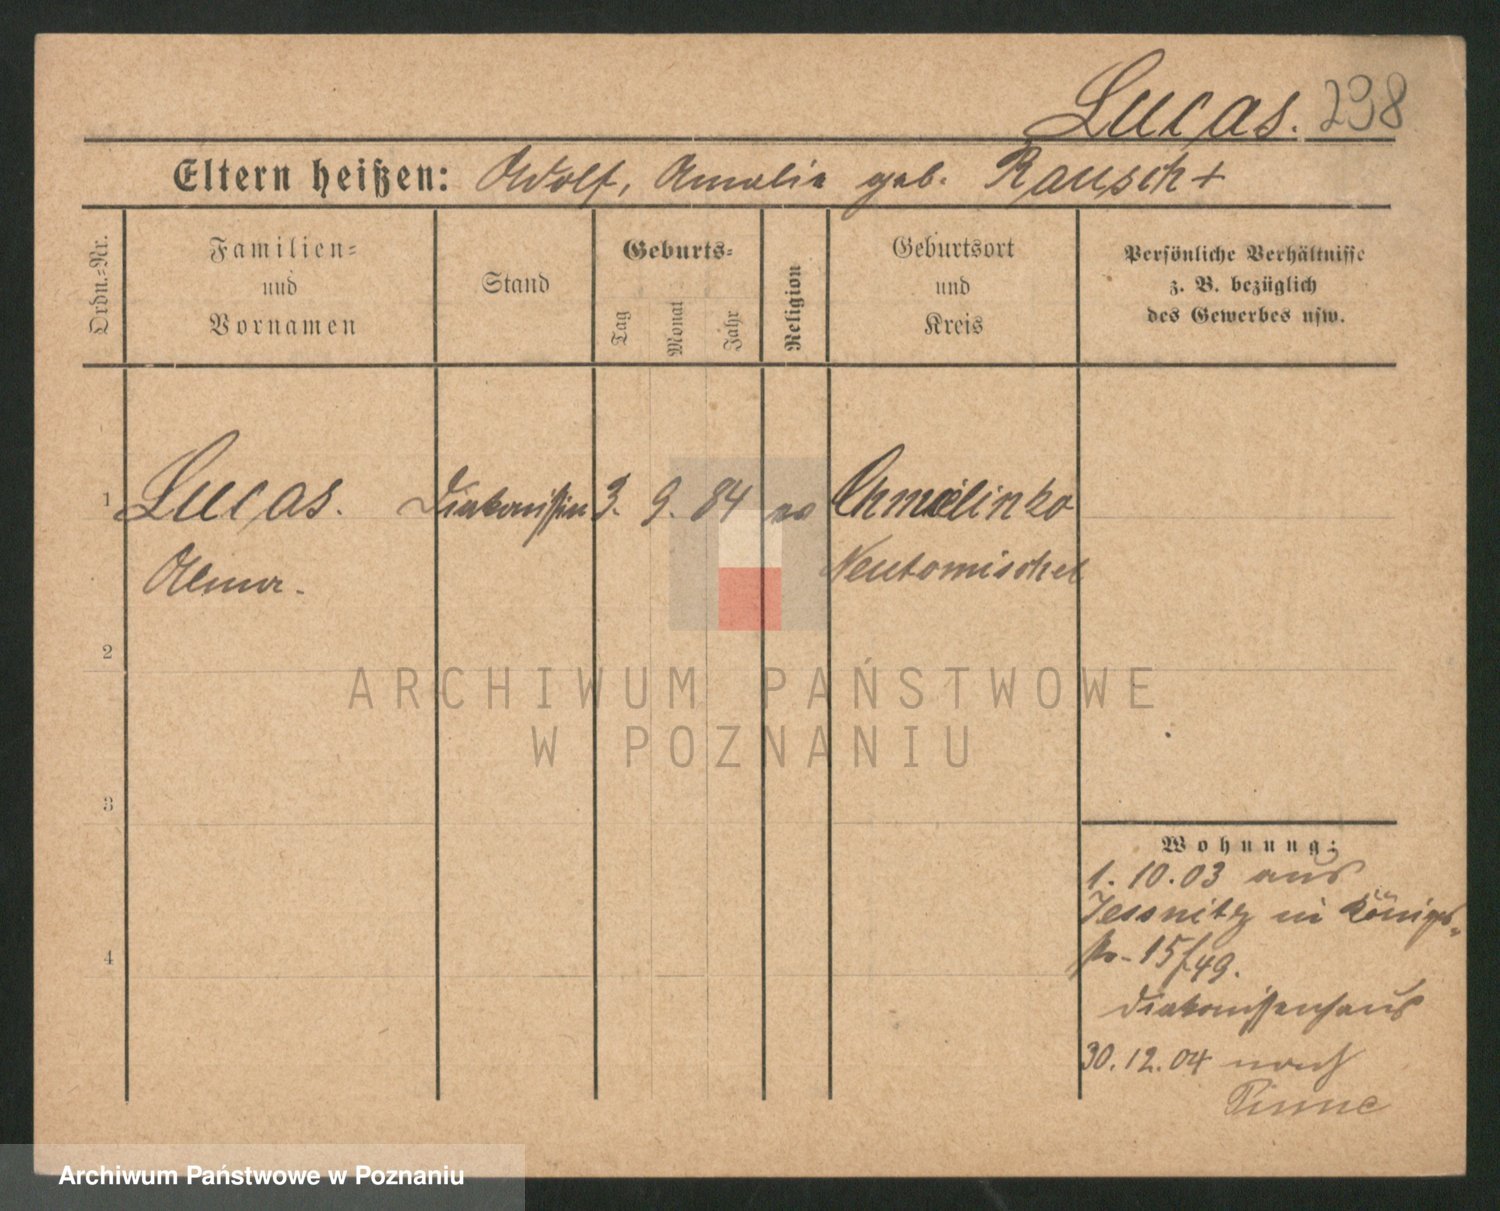 Lucas. 238
Eltern heißen: Adolf, Amalie geb. Rausch +
Ordn.=Nr.
Familien=
und
Vornamen
Stand
Geburts=
Tag
Monat
Jahr
Religion
Geburtsort
und
Kreis
Persönliche Verhältnisse
z. B. bezüglich
des Gewerbes usw.
1 Lucas. Diakonissin 3. 9. 84 Chmielinko
Alma. Neutomischel
2
3
4
Wohnung:
1. 10. 03 aus
Jessnitz in Königs-
str. 15/49.
Diakonissenhaus
30. 12. 04 nach
Pinne
ARCHIWUM PAŃSTWOWE
W POZNANIU
Archiwum Państwowe w Poznaniu